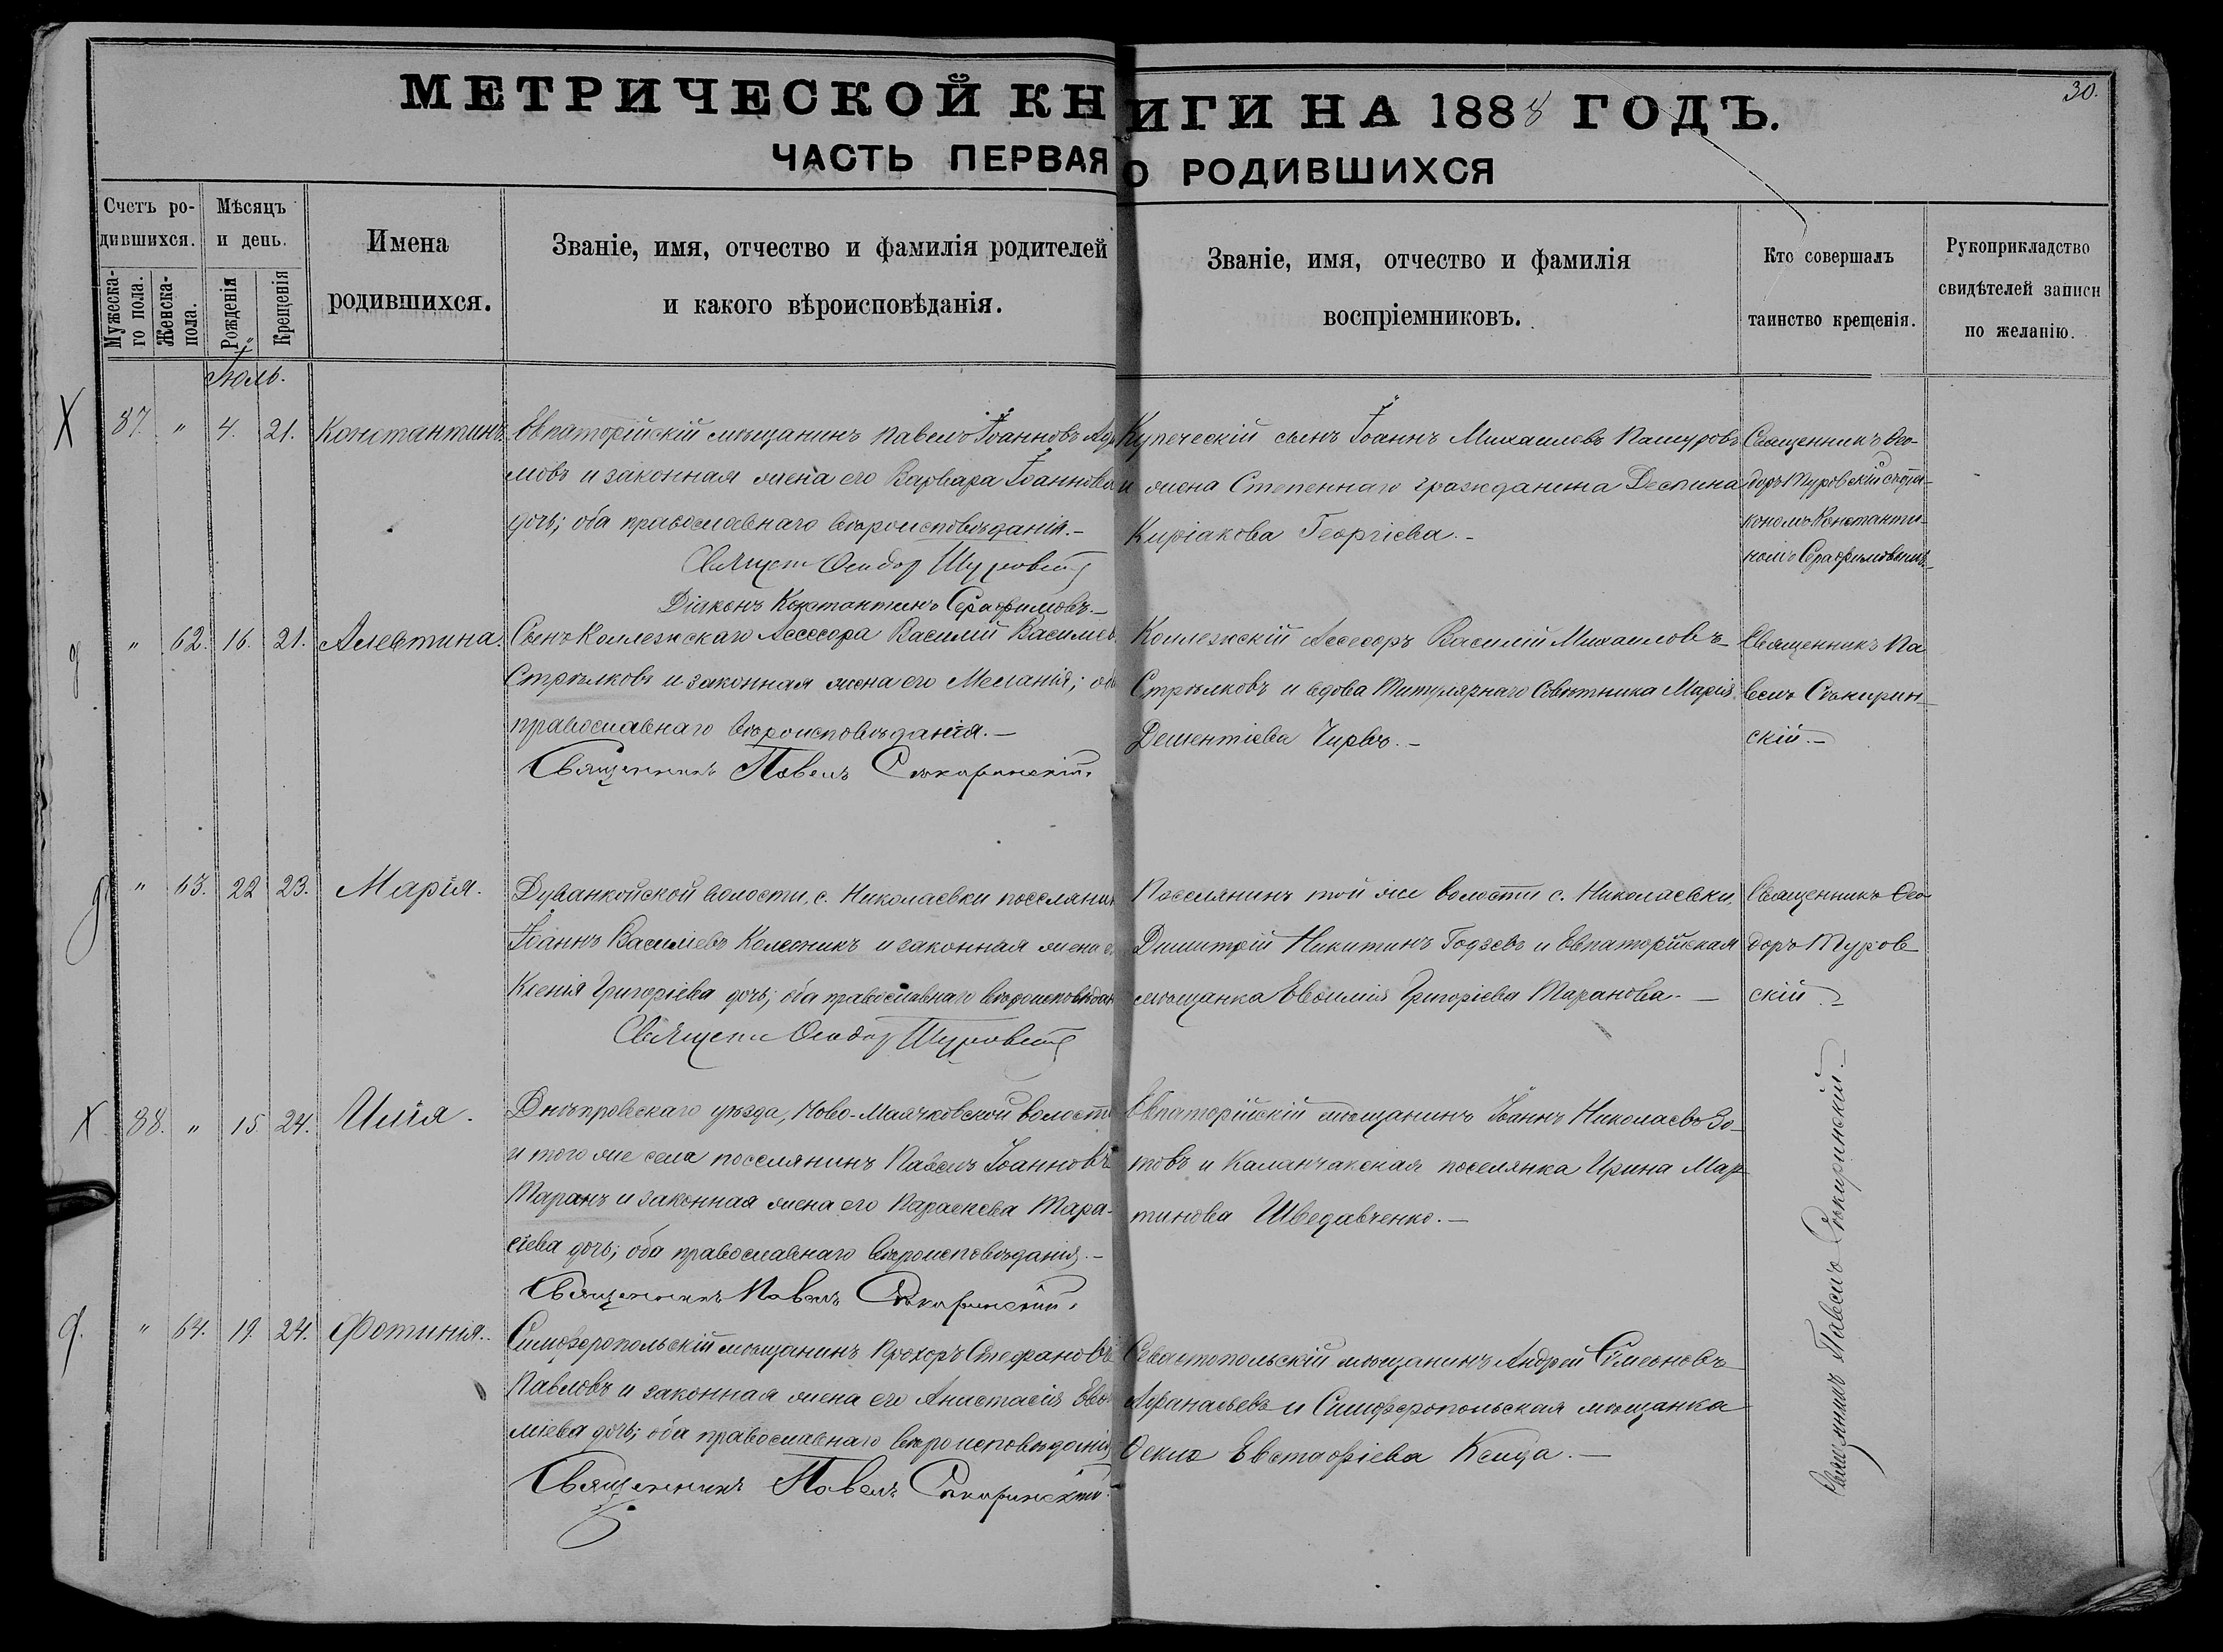 30.
МЕТРИЧЕСКОЙ КНИГИ НА 1888 ГОДЪ.
ЧАСТЬ ПЕРВАЯ О РОДИВШИХСЯ
Счетъ родившихся.
Мужеска-
го пола.
Женска-
пола.
Мѣсяцъ
и день.
Рожденія
Крещенія
Имена
родившихся.
Званіе, имя, отчество и фамилія родителей
и какого вѣроисповѣданія.
Званіе, имя, отчество и фамилія
воспріемниковъ.
Кто совершалъ
таинство крещенія.
Рукоприкладство
свидѣтелей записи
по желанію.
Іюль.
87. " 4. 21. Константинъ.
Евпаторійскій мѣщанинъ Павелъ Іоанновъ
мовъ и законная жена его Варвара Іоаннова
дочь; оба православнаго вѣроисповѣданія.-
Священ Ѳеодор Туровскій
Діяконъ Константинъ Серафимовъ.-
Купеческій сынъ Іоаннъ Михаиловъ Пашуровъ
и жена Степеннаго гражданина Деспина
Киріакова Георгіева.-
Священникъ Ѳео-
доръ Туровскій съ діа-
кономъ Константи-
номъ Серафимовымъ.
" 62. 16. 21. Алевтина.
Сынъ Коллежскаго Ассесора Василій Васильев
Стрѣлковъ и законная жена его Меланія; об
православнаго вѣроисповѣданія.-
Священникъ Павелъ Сѣкиринскій.
Коллежскій Ассесоръ Василій Михаиловъ
Стрѣлковъ и вдова Титулярнаго Совѣтника Марія
Дементіева Чирвъ.-
Священникъ Па
велъ Сѣкирин-
скій.-
" 63. 22 23. Марія.
Дуванкойской волости, с. Николаевки поселянин
Іоаннъ Василіевъ Колесникъ и законная жена е
Ксенія Григоріева дочь; оба православнаго вѣроисповѣдан
Священ Ѳеодор Туровскій
Поселянинъ той же волости с. Николаевки,
Димитрій Никитинъ Годзевъ и Евпаторійская
мѣщанка Евѳимія Григоріева Таранова.-
Священникъ Ѳео-
доръ Туров-
скій.-
88. " 15 24. Илія.
Днѣпровскаго уѣзда, Ново-Маячковской волости
и того же села поселянинъ Павелъ Іоанновъ
Таранъ и законная жена его Параскева Тара-
сіева дочь; оба православнаго вѣроисповѣданія.-
Священникъ Павелъ Сѣкиринскій.
Евпаторійскій мѣщанинъ Іоаннъ Николаевъ Зо-
товъ и Каланчакская поселянка Ирина Мар-
тинова Шведавченко.-
Священникъ Павелъ Сѣкиринскій.-
" 64. 19. 24. Фотинія.
Симферопольскій мѣщанинъ Прохоръ Стефановъ
Павловъ и законная жена его Анастасія Евѳи
міева дочь; оба православнаго вѣроисповѣданія
Священникъ Павелъ Сѣкиринскій.
Севастопольскій мѣщанинъ Андрей Сімеоновъ
Афанасьевъ и Симферопольская мѣщанка
Ѳекла Евстафіева Ксида.-